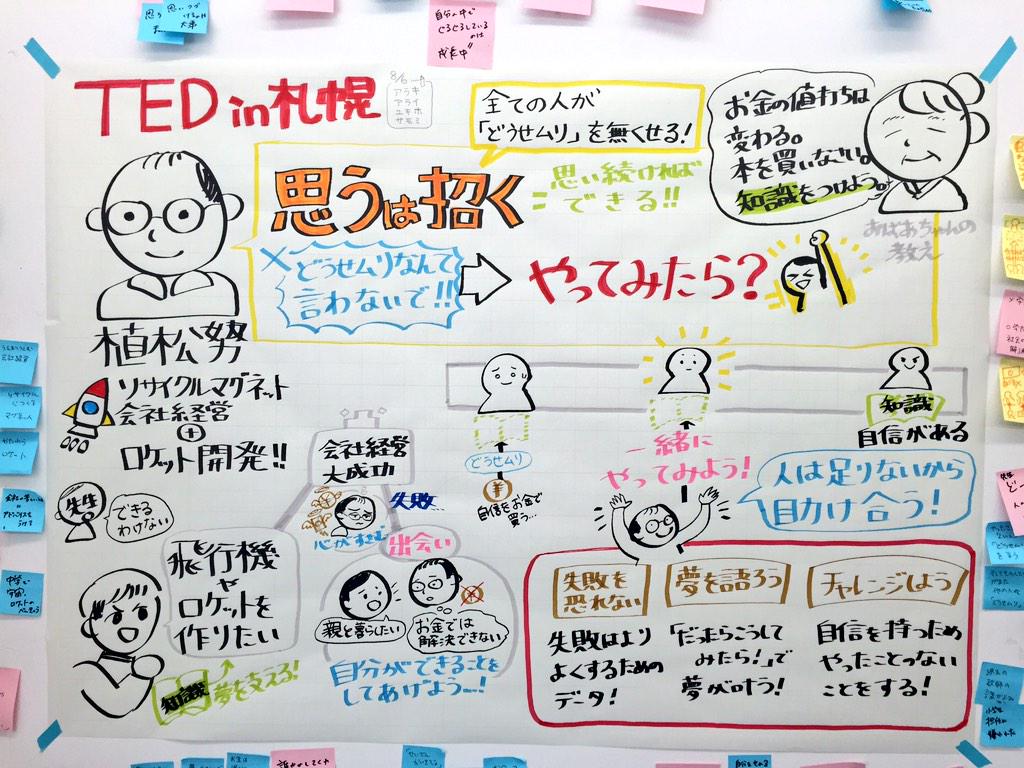 自分の中で
ぐるぐるしている
のは
成長中"
TED in 札幌
8/6
アラキ
アライ
ユキホ
サモミ
全ての人が
「どうせムリ」を無くせる!
お金の値打ちは
変わる。
本を買いなさい。
知識をつけよう。
おばあちゃんの
教え
思うは招く
思い続ければ
できる!!
どうせムリなんて
言わないで!!
やってみたら?
植松努
リサイクルマグネット
会社経営
+
ロケット開発!!
先生
できる
わけない
飛行機
や
ロケットを
作りたい
知識
夢を支える!
会社経営
大成功
失敗…
心がすさむ
出会い
親と暮らしたい
お金では
解決できない
自分ができることを
してあげよう…!
どうせムリ
¥
自信をお金で
買う…
一緒に
やってみよう!
知識
自信がある
人は足りないから
助け合う!
失敗を
恐れない
失敗はより
よくするための
データ!
夢を語ろう
「だったらこうして
みたら!」で
夢が叶う!
チャレンジしよう
自信を持つため
やったことのない
ことをする!